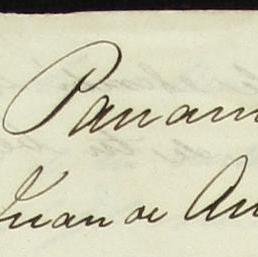 Panam
Juan de An